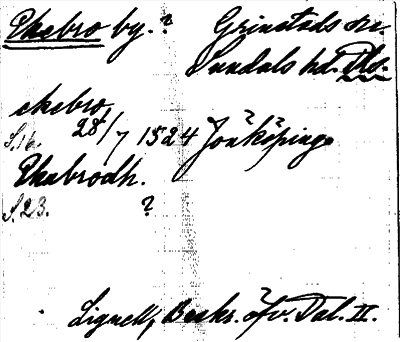 Ekebro by. ? Grinstads sn.
Sundals hd. Dls.
ekebro,
S.16. 28/7 1524 Jonköping ?
Ekabrodh.
S.23. ?
Lignell, Beskr. öfv. Dal. II.